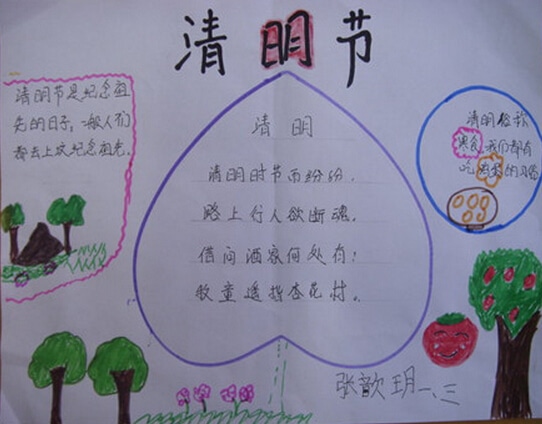 清明节
清明节是纪念祖
先的日子,一般人们
都去上坟纪念祖先.
清 明
清明时节雨纷纷,
路上行人欲断魂。
借问酒家何处有?
牧童遥指杏花村。
清明俗称
寒食,我们都有
吃 的习俗
张歆玥 一、三